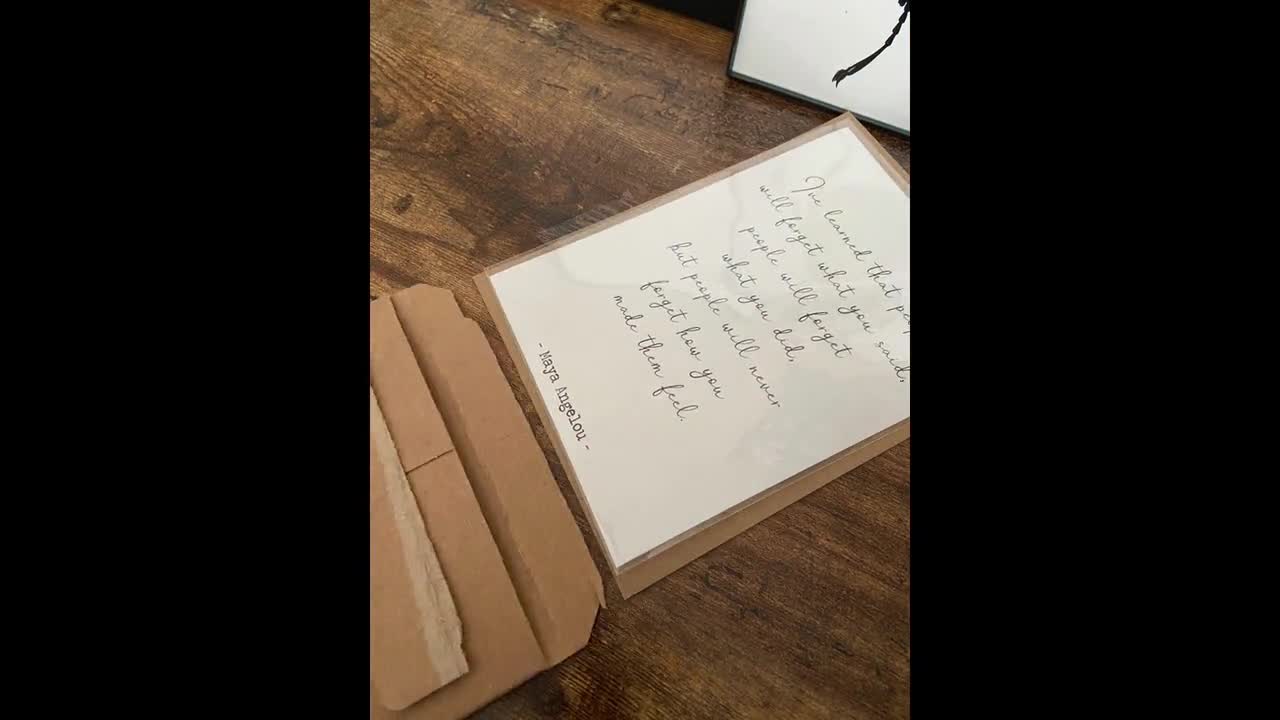 I've learned that peop
will forget what you said,
people will forget
what you did,
but people will never
forget how you
made them feel.
- Maya Angelou -